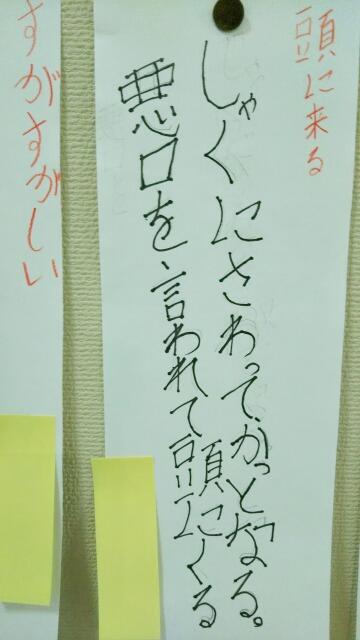 頭に来る
しゃくにさわって、かっとなる。
悪口を言われて頭にくる
すがすがしい